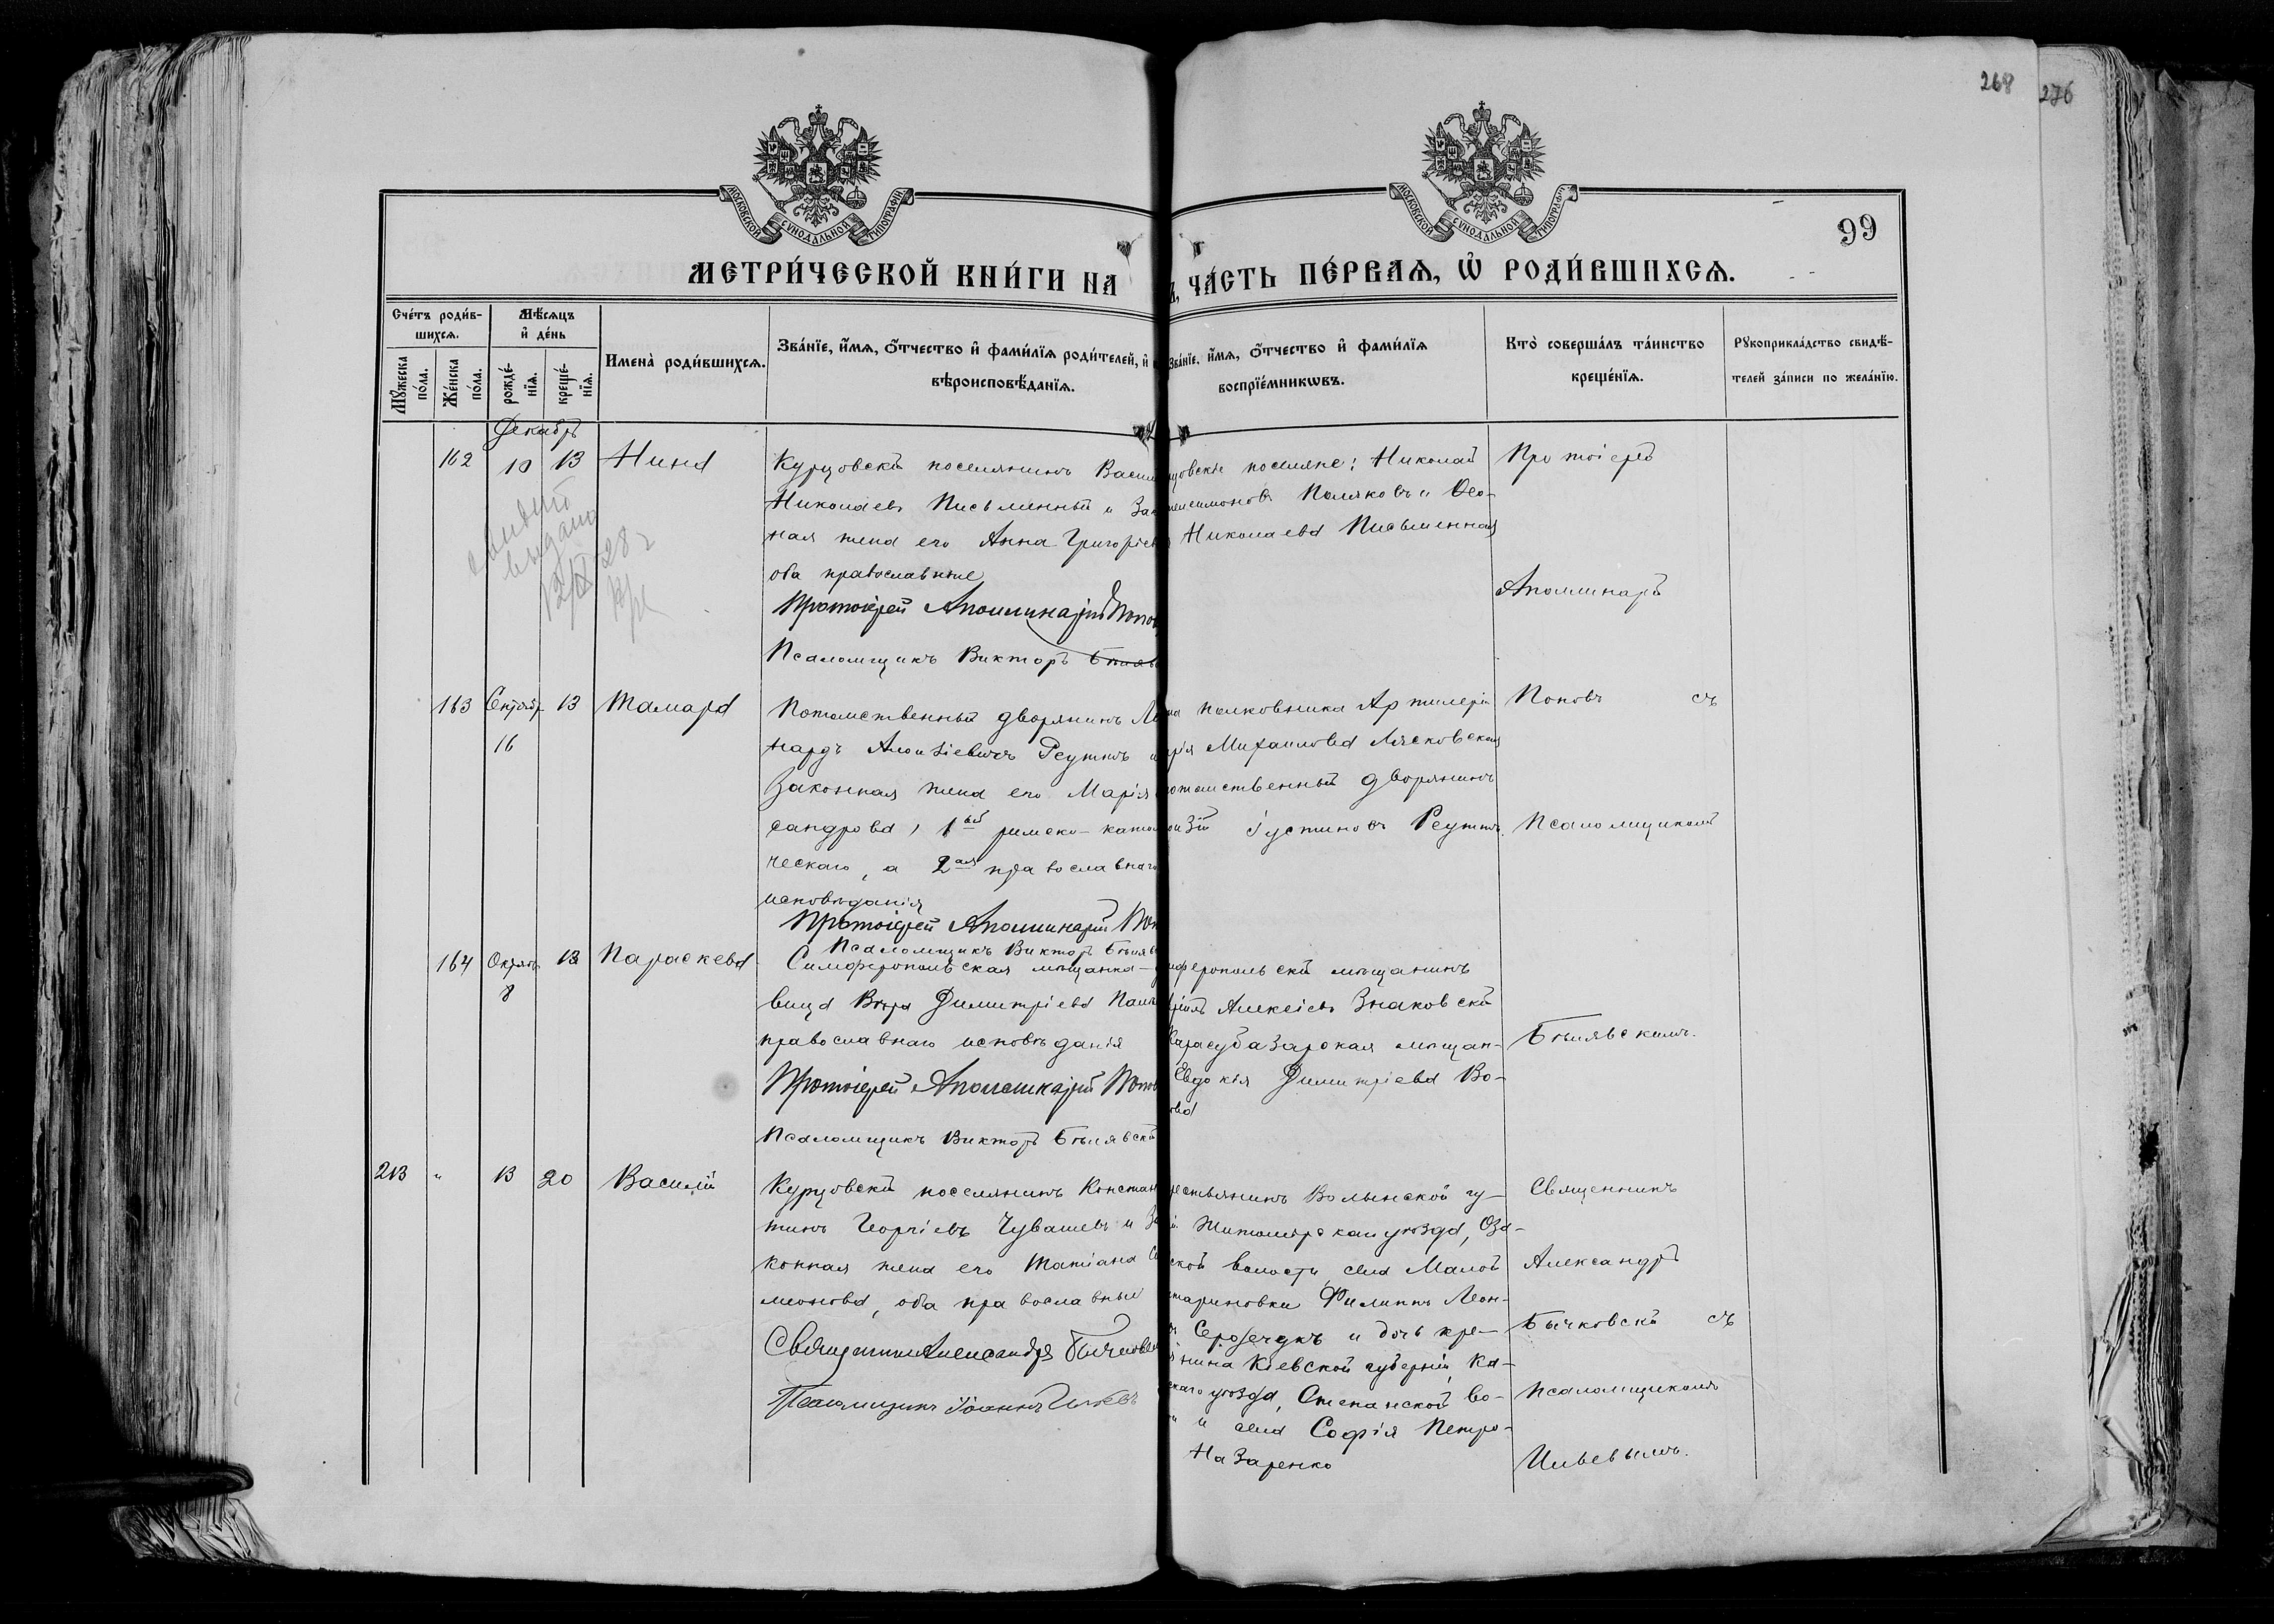 268
276
МОСКОВСКОЙ СѴНОДАЛЬНОЙ ТИПОГРАФІИ
МОСКОВСКОЙ СѴНОДАЛЬНОЙ ТИПОГРАФІИ
99
МЕТРИ́ЧЕСКОЙ КНИ́ГИ НА
ЧА́СТЬ ПЕ́РВАѦ, Ѡ҆ РОДИ́ВШИХСѦ.
Сче́тъ роди́в-
шихсѧ.
Мꙋ́жеска по́ла.
Же́нска по́ла.
Мѣ́сѧцъ
и҆ де́нь
рожде́-
нїѧ.
креще́-
нїѧ.
Имена̀ роди́вшихсѧ.
Зва́нїе, и҆́мѧ, ѻ҆́тчество и҆ фами́лїѧ роди́телей, и҆
вѣроисповѣ́данїѧ.
Зва́нїе, и҆́мѧ, ѻ҆́тчество и҆ фами́лїѧ
воспрїе́мникѡвъ.
Кто̀ соверша́лъ та́инство
креще́нїѧ.
Рꙋкоприкла́дство свидѣ́-
телей за́писи по жела́нїю.
Декабрь
162 10 13 Нина
Курцовскій поселянинъ Васил
Николаевъ Письменный и Зак
ная жена его Анна Григорьев
оба православные
Протоіерей Аполлинарій Попов
Псаломщикъ Викторъ Бѣляв
цовскіе поселяне: Николай
Поляковъ и
Николаева Письменная
Протоіерей
Аполлинарій
выдано
28 г
163 Сентяб. 13 Тамара
16
Потомственный дворянинъ Ле
нардъ Алоизіевичъ Реуттъ и
Законная жена его Марія
сандрова, 1ый римско-катол
ческаго, а 2ая православнаго
исповѣданія
Протоіерей Аполлинарій Поп
Псаломщикъ Викторъ Бѣляв
на полковника Артилеріи
рія Михаилова Лясковская
отомственный дворянинъ
оизій Густиновъ Реуттъ
Поповъ съ
Псаломщикомъ
164 Октябр. 13 Параскева
8
Симферопольская мѣщанка-
вица Вѣра Димитріева Пал
православнаго исповѣданія
Протоіерей Аполлинарій Попов
Псаломщикъ Викторъ Бѣлявскій
мферопольскій мѣщанинъ
Алексіевъ Знаковскій
Карасубазарская мѣщан-
Евдокія Димитріева Во-
ова
Бѣлявскимъ.
213 " 13 20 Василій
Курцовскій поселянинъ Констан
тинъ Георгіевъ Чувашевъ и За
конная жена его Татіана Си
меонова, оба православные
Священникъ Александръ Бычковск
Псаломщикъ Іоаннъ Ильевъ
рестьянинъ Волынской гу-
Житомірскаго уѣзда, Оза-
ской волости, села Малой
тариновки Филиппъ Леон-
и дочь кре-
янина Кіевской губерніи, Ка-
скаго уѣзда, Степанской во-
и села Софія Петро-
Назаренко
Священникъ
Александръ
Бычковскій съ
псаломщикомъ
Ильевымъ.